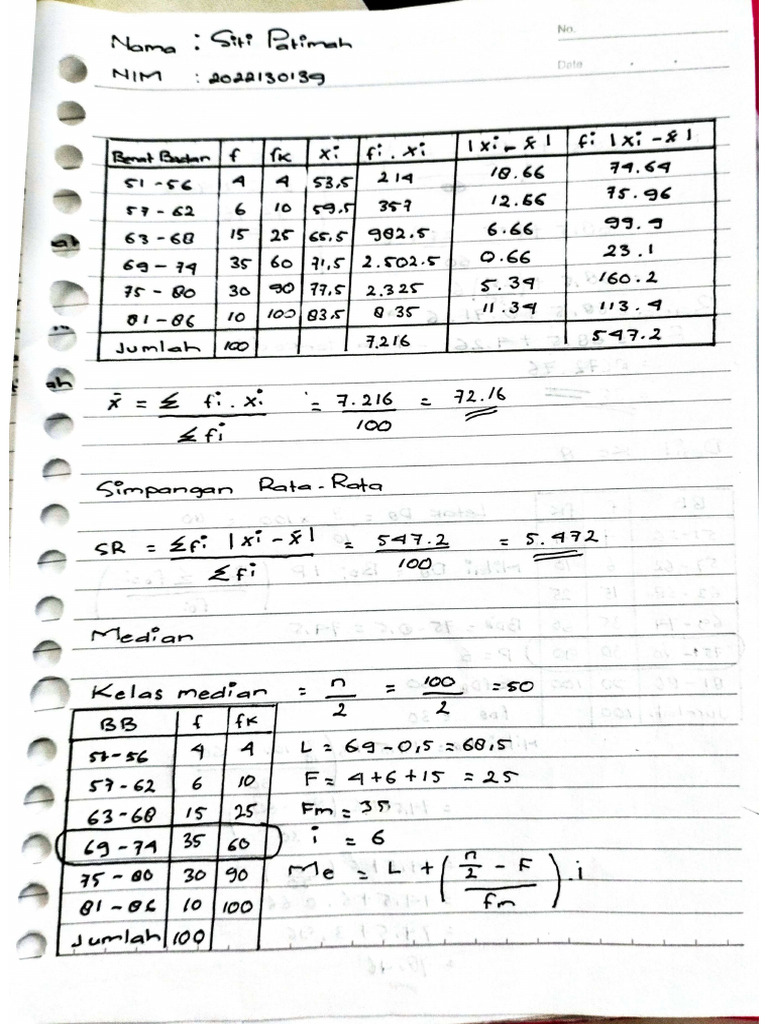 No.
Date
Nama : Siti Patimah
NIM : 2022130139
Berat Badan f fk xi fi . xi |xi - x̄| fi |xi - x̄|
51 - 56 4 4 53,5 214 18.66 74.64
57 - 62 6 10 59,5 357 12.66 75.96
63 - 68 15 25 65,5 982.5 6.66 99.9
69 - 74 35 60 71,5 2.502.5 0.66 23.1
75 - 80 30 90 77,5 2.325 5.34 160.2
81 - 86 10 100 83,5 835 11.34 113.4
Jumlah 100 7.216 547.2
x̄ = Σ fi . xi / Σ fi = 7.216 / 100 = 72.16
Simpangan Rata-Rata
SR = Σfi |xi - x̄| / Σ fi = 547.2 / 100 = 5.472
Median
Kelas median = n / 2 = 100 / 2 = 50
BB f fk
51-56 4 4 L = 69 - 0,5 = 68,5
57 - 62 6 10 F = 4 + 6 + 15 = 25
63 - 68 15 25 Fm = 35
69 - 74 35 60 i = 6
75 - 80 30 90 Me = L + ( n/2 - F / fm ) . i
81 - 86 10 100
Jumlah 100